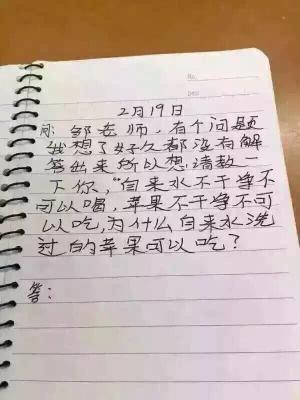 No.
2月19日
问:邹老师,有个问题
我想了好久都没有解
答出来所以想请教一
下你,“自来水不干净不
可以喝,苹果不干净不可
以吃,为什么自来水洗
过的苹果可以吃?
答: